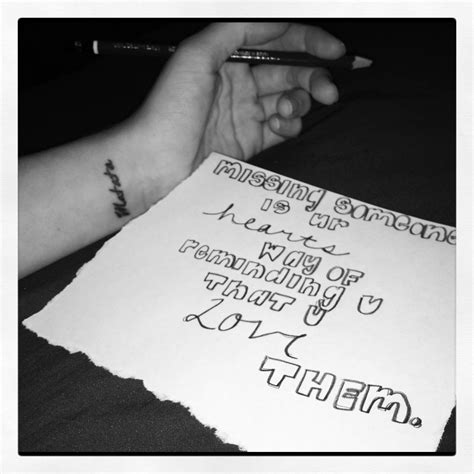 missing someone
is ur
hearts
way of
reminding u
that u
Love
THEM.